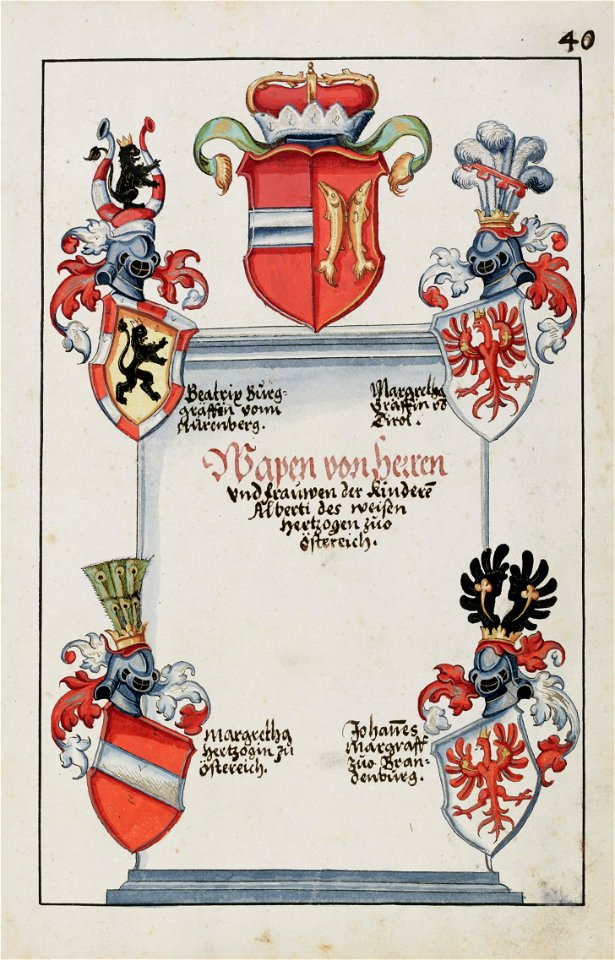 40
Beatrix Burg-
gräffin vonn
Nürenberg.
Margretha
Gräffin vō
Tirol.
Wapen von Herren
vnd frauwen der Kinderē
Alberti des weisen
Hertzogen zuo
Östereich.
Margretha
Hertzogin zu
Östereich.
Johan̄es
Margraff
zuo Bran-
denburg.